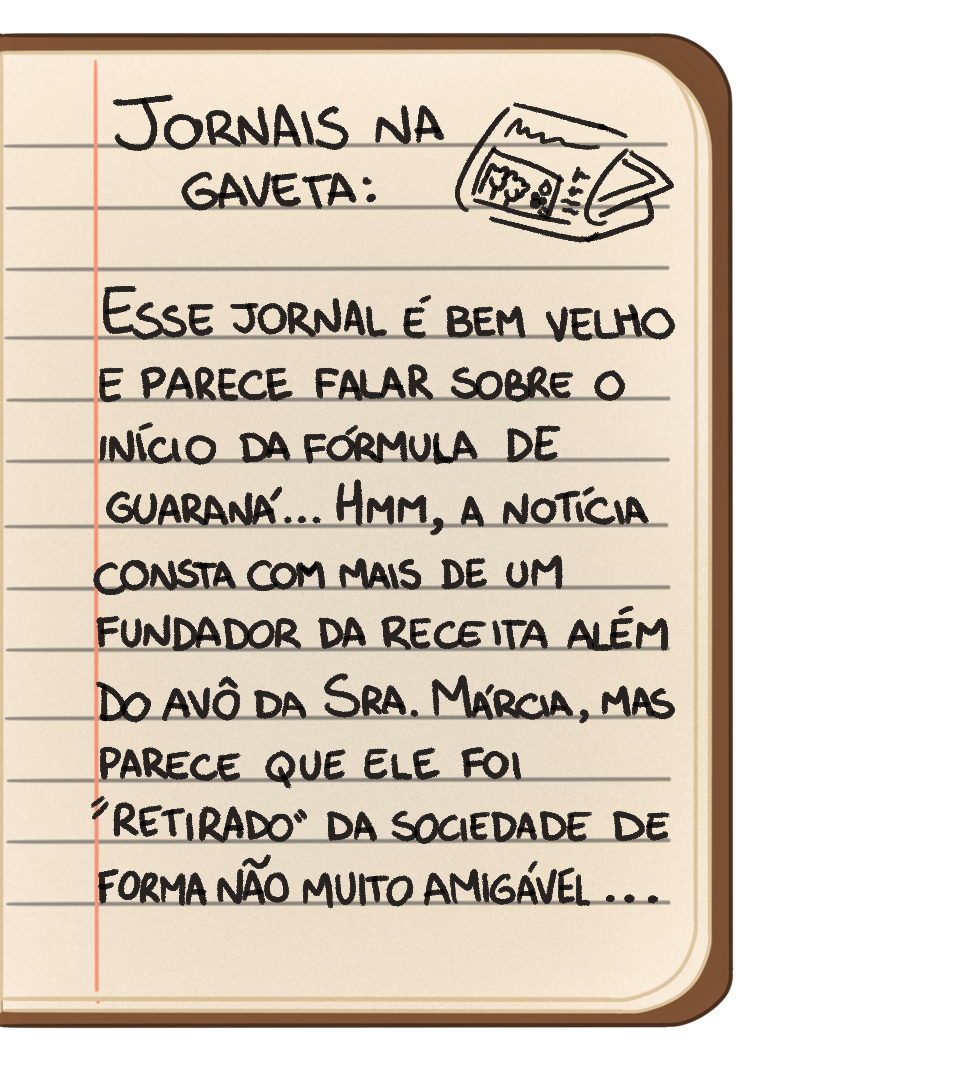 JORNAIS NA
GAVETA:
ESSE JORNAL É BEM VELHO
E PARECE FALAR SOBRE O
INÍCIO DA FÓRMULA DE
GUARANÁ... HMM, A NOTÍCIA
CONSTA COM MAIS DE UM
FUNDADOR DA RECEITA ALÉM
DO AVÔ DA SRA. MÁRCIA, MAS
PARECE QUE ELE FOI
"RETIRADO" DA SOCIEDADE DE
FORMA NÃO MUITO AMIGÁVEL...